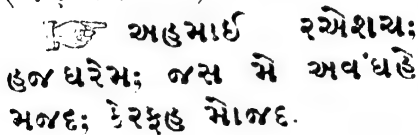 ☞ અહમાઈ રએશચ;
હજ ઘરેમ; જસ મે અવંઘહે
મજદ; કેરફહ મોજદ.